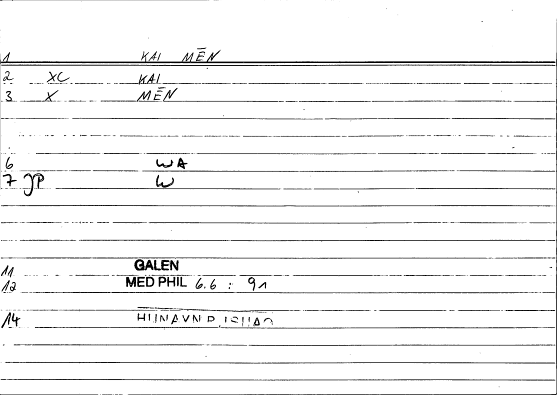 1 KAI MĒN
2 XC KAI
3 X MĒN
6 WA
7 JP W
11 GALEN
12 MED PHIL 6.6 : 91
14 HUNAYN B. ISHAQ